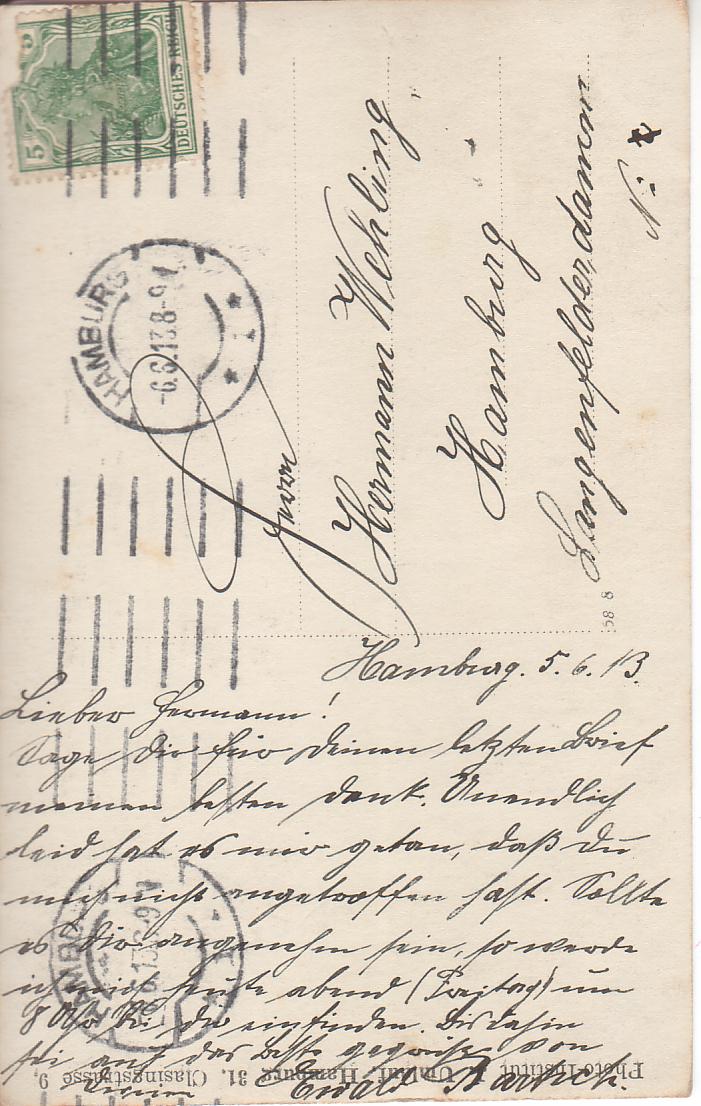 DEUTSCHES REICH
5
5
HAMBURG
-6.6.13.8-9V.
* 1 *
Herrn
Hermann Wehling
Hamburg
Langenfelderdamm
No.
58 8
Hamburg. 5.6.13.
Lieber Hermann!
Sage Dir für Deinen letzten Brief
meinen besten Dank. Unendlich
leid hat es mir getan, daß Du
mich nicht angetroffen hast. Sollte
es Dir angenehm sein, so werde
ich mich heute abend (Freitag) um
8 Uhr bei dir einfinden. Bis dahin
sei auf das Beste gegrüßt von
Deinem Ewald
HAMBURG
Photo-Institut, Hamburg 31, Clasingstrasse 9.